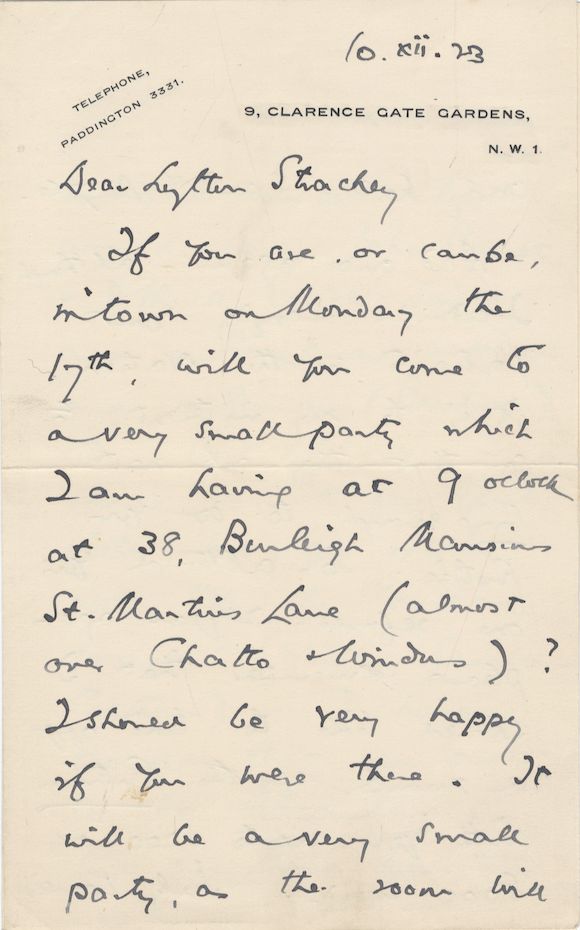 10. xii. 23
TELEPHONE,
PADDINGTON 3331.
9, CLARENCE GATE GARDENS,
N. W. 1.
Dear Lytton Strachey
If you are, or can be,
in town on Monday the
17th, will you come to
a very small party which
I am having at 9 oclock
at 38, Burleigh Mansions
St. Martin's Lane (almost
over Chatto & Windus) ?
I should be very happy
if you were there. It
will be a very small
party, as the room will